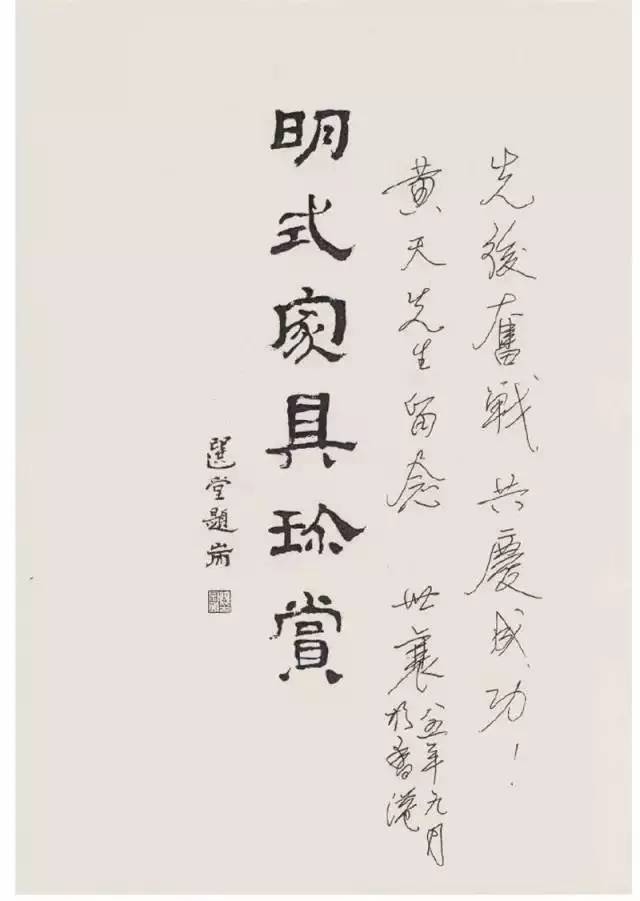 先後奮戰共慶成功!
黄天先生留念 世襄
八五年元月
於香港
明式家具珍賞
選堂題耑